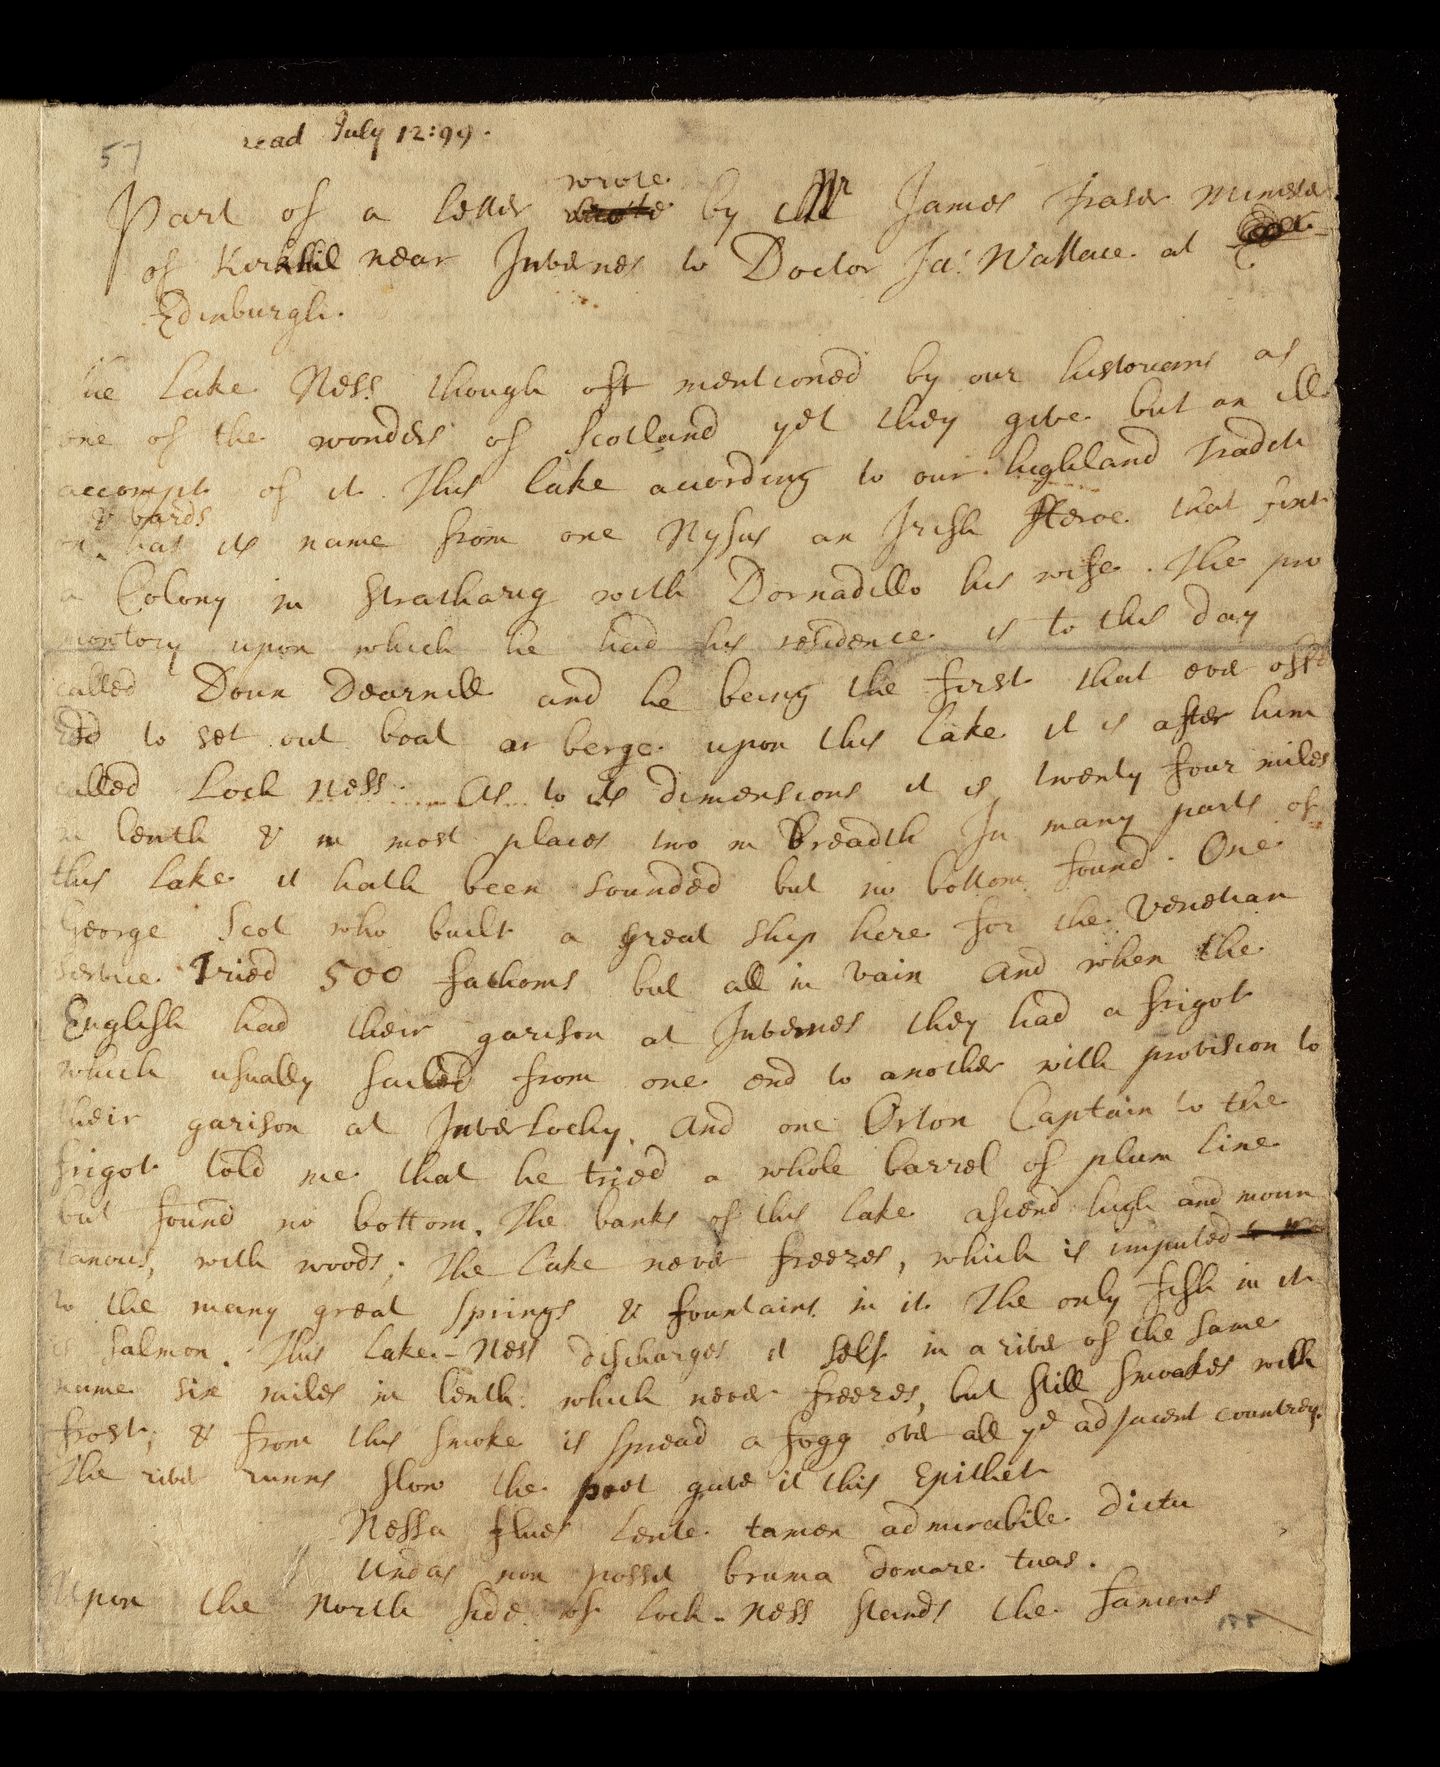 57
read July 12:99.
wrote
Part of a letter wrote by Mr James Fraser Minister
of Kirkhil near Invernes to Doctor Ja: Wallace at
Edinburgh.
he Lake Ness though oft mentioned by our historians as
one of the wonders of Scotland yet they give but an ill
accompt of it. This Lake acording to our highland Traditi
& bards
on hat its name from one Nysus an Irish Heroe that first
a Colony in Stratharig with Dornadillo his wife. The pro
montory upon which he had his residence is to this day
called Doun Dearnill and he being the first that ever offr
Edd to set out boat or berge upon this Lake it is after him
called Loch Ness. As to its dimensions it is twenty four miles
in lenth & in most places two in breadth In many parts of
this Lake it hath been sounded but no bottom found. One
George Scot who built a great ship here for the Venetian
service Tried 500 fathoms but all in vain And when the
English had their garison at Invernes they had a frigot
which usually sailed from one end to another with provision to
their garison at Inverlochy. And one Orton Captain to the
frigot told me that he tried a whole barrel of plum line
but found no bottom. The banks of this Lake ascend high and moun
tanous, with woods; The Lake never freezes, which is imputed
to the many great springs & fountains in it. The only fish in it
is Salmon. This Lake-Ness discharges it self in a river of the same
name six miles in lenth. which never freezes, but still smoakes with
frost; & from this smoke is spread a fogg over all ye adjacent countrey.
The river runns slow the poet give it this Epithet
Nessa fluis Lente tamen admirabile dictu
Undas non possit bruma domare tuas.
Upon the North side of Loch-Ness stands the famous